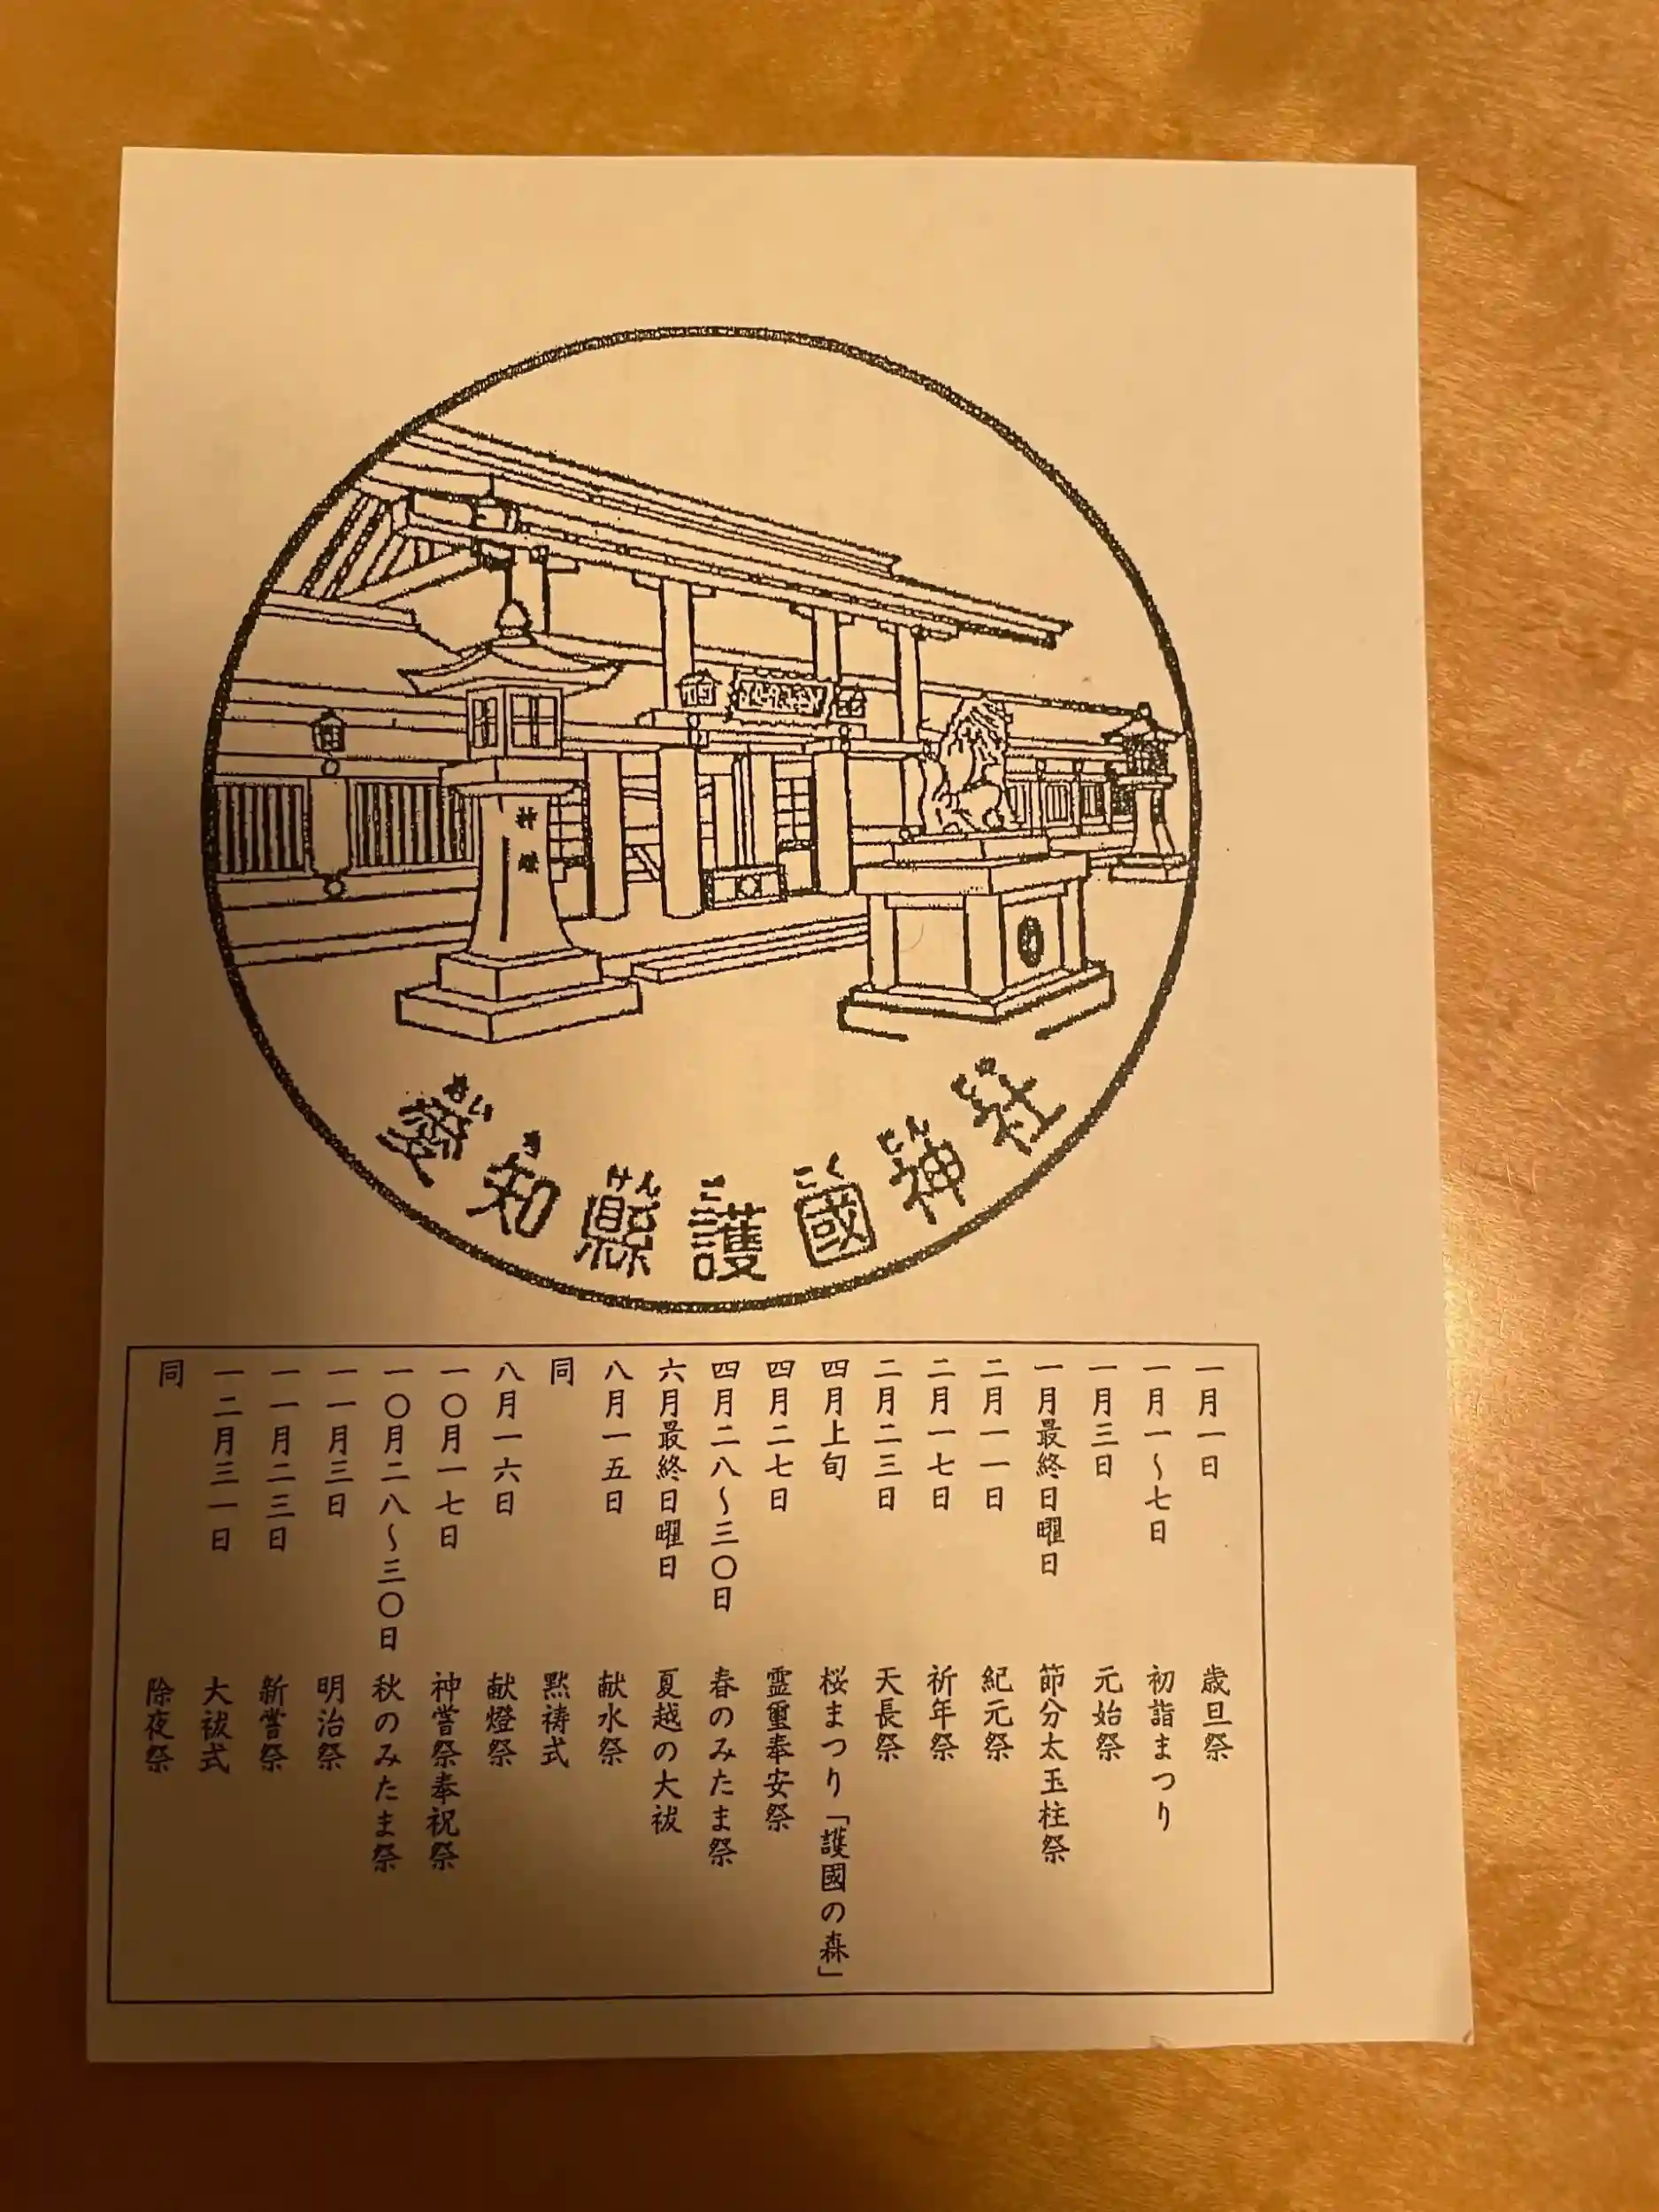 愛知縣護國神社
あいちけんごこくじんじゃ
一月一日 歳旦祭
一月一～七日 初詣まつり
一月三日 元始祭
一月最終日曜日 節分太玉柱祭
二月一一日 紀元祭
二月一七日 祈年祭
二月二三日 天長祭
四月上旬 桜まつり「護國の森」
四月二七日 霊璽奉安祭
四月二八～三〇日 春のみたま祭
六月最終日曜日 夏越の大祓
八月一五日 献水祭
同 黙祷式
八月一六日 献燈祭
一〇月一七日 神嘗祭奉祝祭
一〇月二八～三〇日 秋のみたま祭
一一月三日 明治祭
一一月二三日 新嘗祭
一二月三一日 大祓式
同 除夜祭